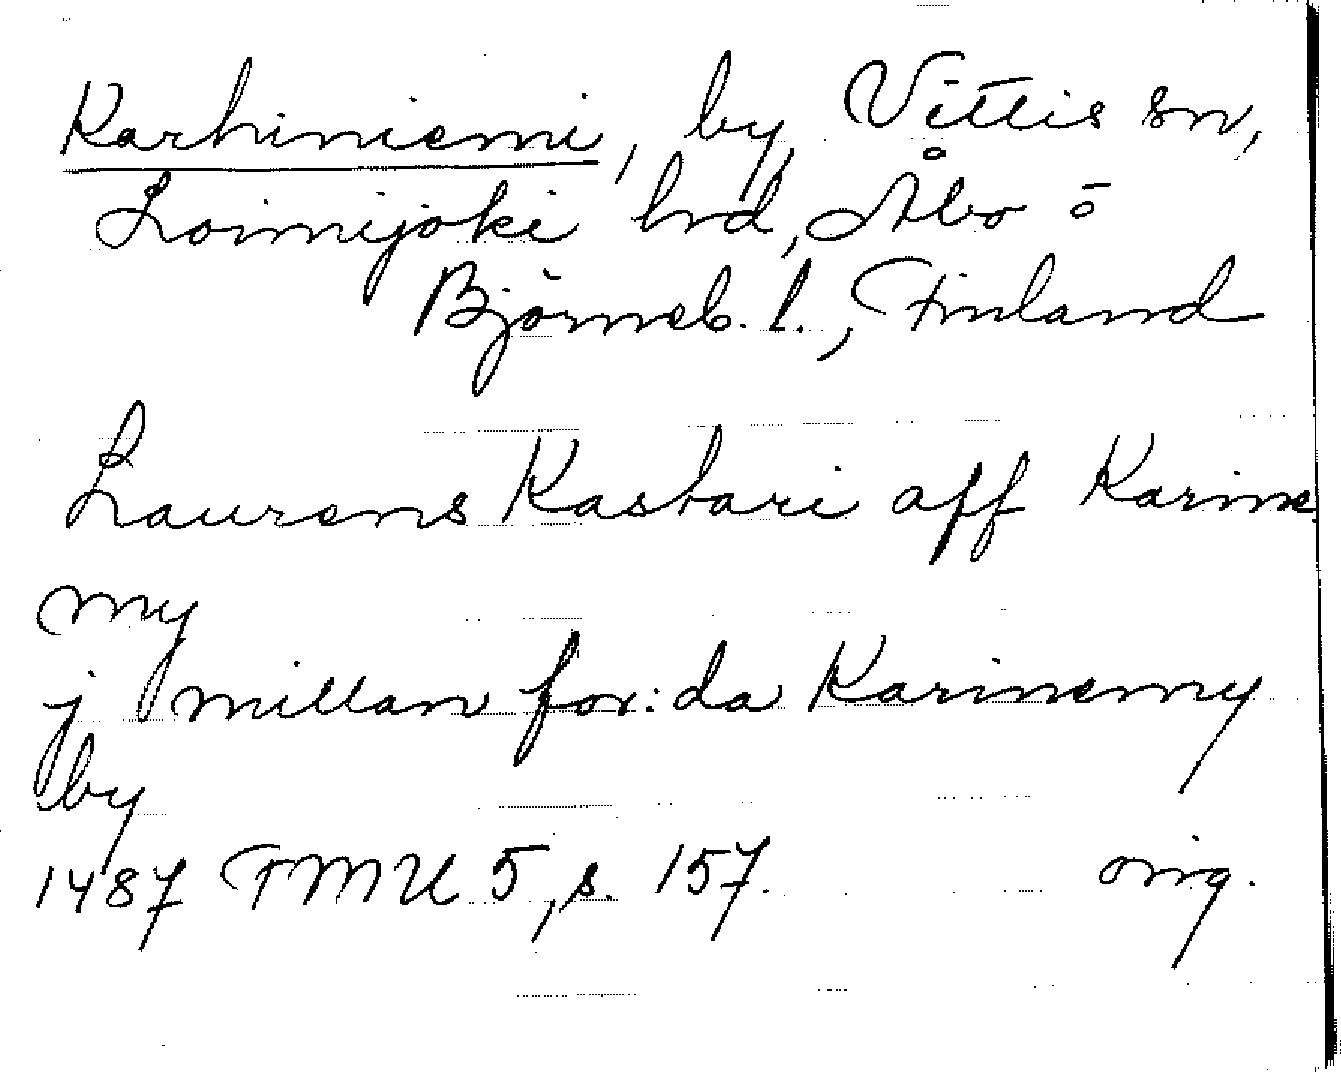 Karhiniemi, by, Vittis sn,
Loimijoki hd, Åbo o
Björneb. l., Finland
Laurens Kastari aff Karine
my
j millan for:da Karinemy
by
1487 FMU 5, s. 157. orig.